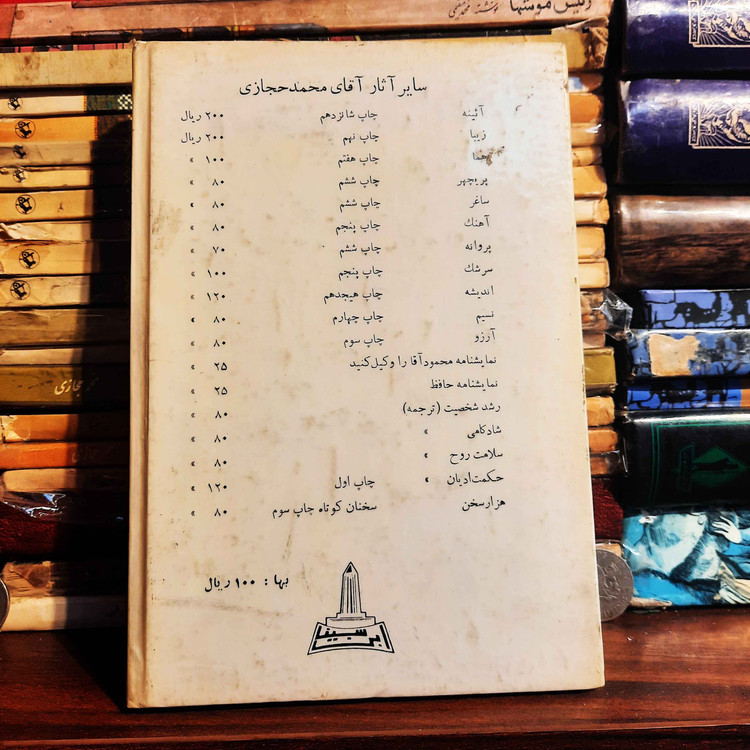 رئیس موشها
سایر آثار آقای محمد حجازی
آئینه چاپ شانزدهم ۲۰۰ ریال
زیبا چاپ نهم ۲۰۰ ریال
هما چاپ هفتم ۱۰۰ »
پریچهر چاپ ششم ۸۰ »
ساغر چاپ ششم ۸۰ »
آهنك چاپ پنجم ۸۰ »
پروانه چاپ ششم ۷۰ »
سرشك چاپ پنجم ۱۰۰ »
اندیشه چاپ هیجدهم ۱۲۰ »
نسیم چاپ چهارم ۸۰ »
آرزو چاپ سوم ۸۰ »
نمایشنامه محمودآقا را وکیل کنید ۲۵ »
نمایشنامه حافظ ۲۵ »
رشد شخصیت (ترجمه) ۸۰ »
شادکامی » ۸۰ »
سلامت روح » ۸۰ »
حکمت ادیان » چاپ اول ۱۲۰ »
هزار سخن سخنان کوتاه چاپ سوم ۸۰ »
بها : ۱۰۰ ریال
ابن سینا
حجازی